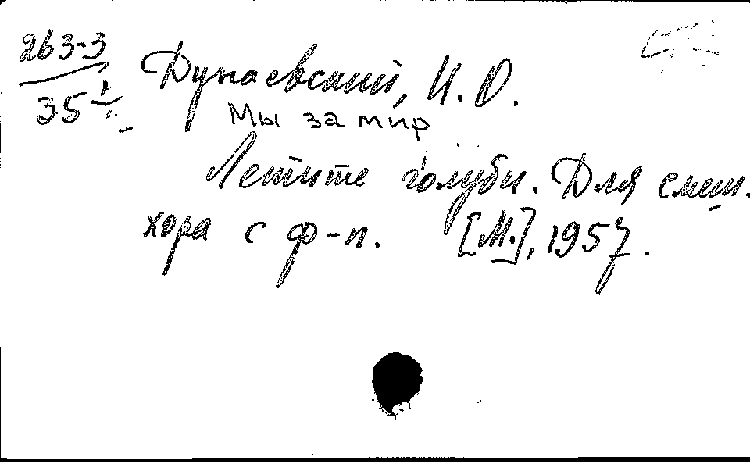 263-3
35
Дунаевский, И. О.
Мы за мир
Летите голуби. Для смеш.
хора с ф-п. [М.], 1957.